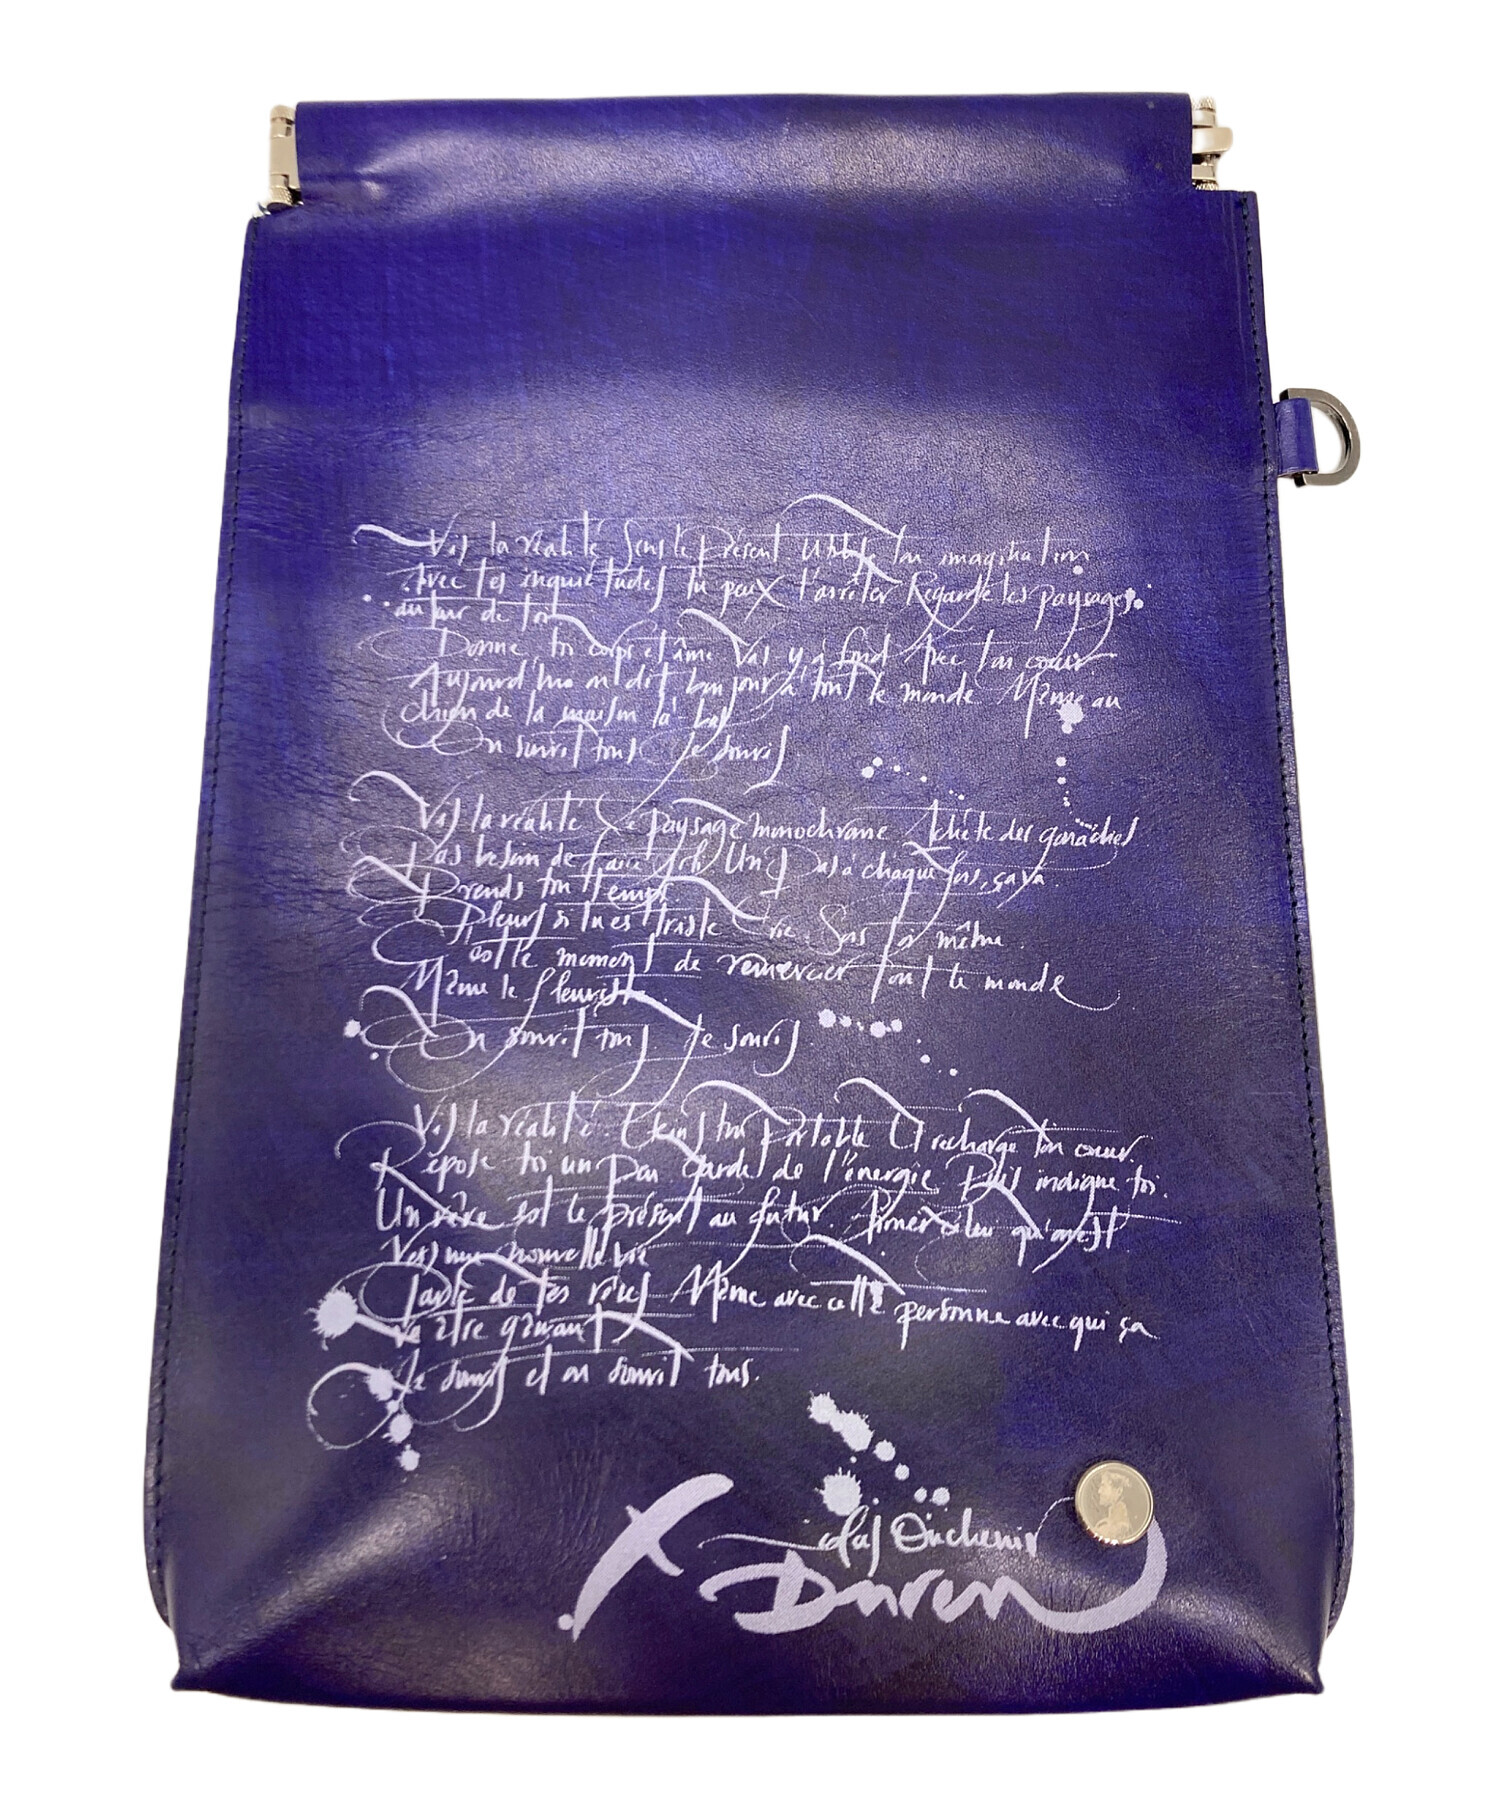 Vis la réalité Sens le présent Utilise ton imagination
Avec tes inquiétudes tu peux t'arrêter Regarde les paysages
autour de toi
Donne toi corps et âme Vas y à fond Avec ton cœur
Aujourd'hui on dit bonjour à tout le monde Même au
chien de la maison là-bas
On sourit tous Je souris
Vis la réalité Le paysage monochrome Achète des
Pas besoin de faire Un pas à chaque fois, ça va.
Prends ton temps
Pleurs si tu es triste Crie. Sois toi même.
C'est le moment de remercier tout le monde
Même le fleuriste
On sourit tous. Je souris
Vis la réalité. Eteins ton portable Et recharge ton cœur.
Repose toi un peu Garde de l'énergie Puis indique toi.
Un rêve est le présent au futur. qu'avant
Vers une nouvelle vie
Parle de tes rêves Même avec cette personne avec qui ça
va être gênant
Je souris et on sourit tous.
Duren